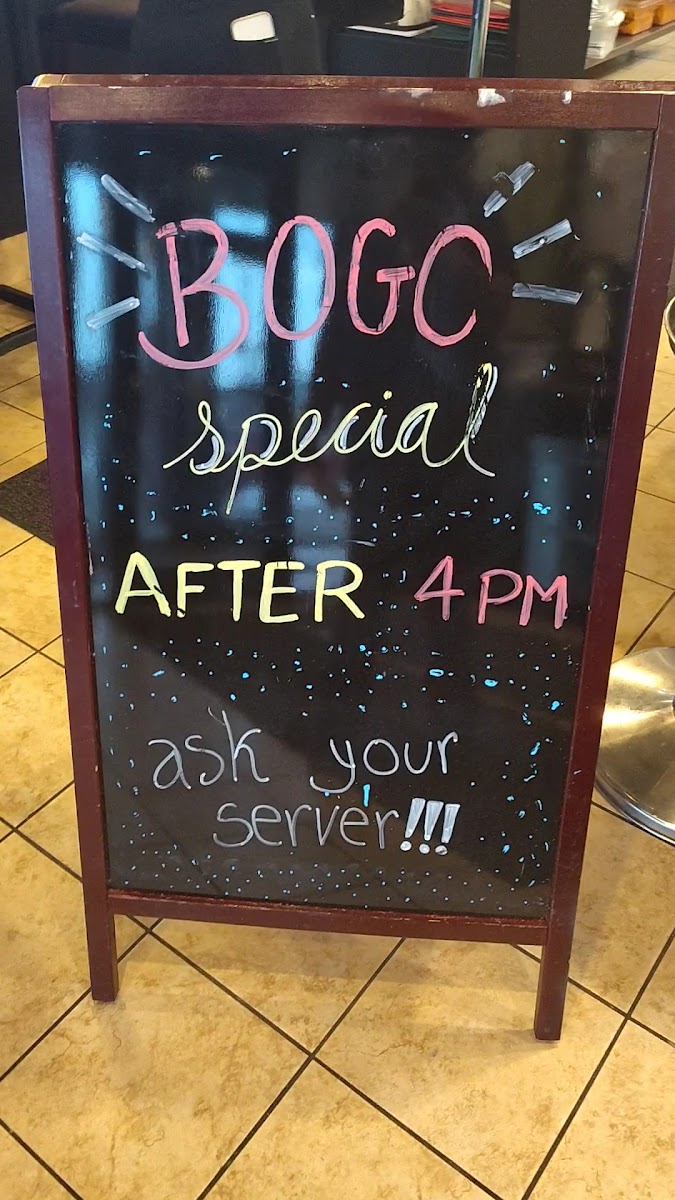 BOGC
special
AFTER 4PM
ask your
server!!!